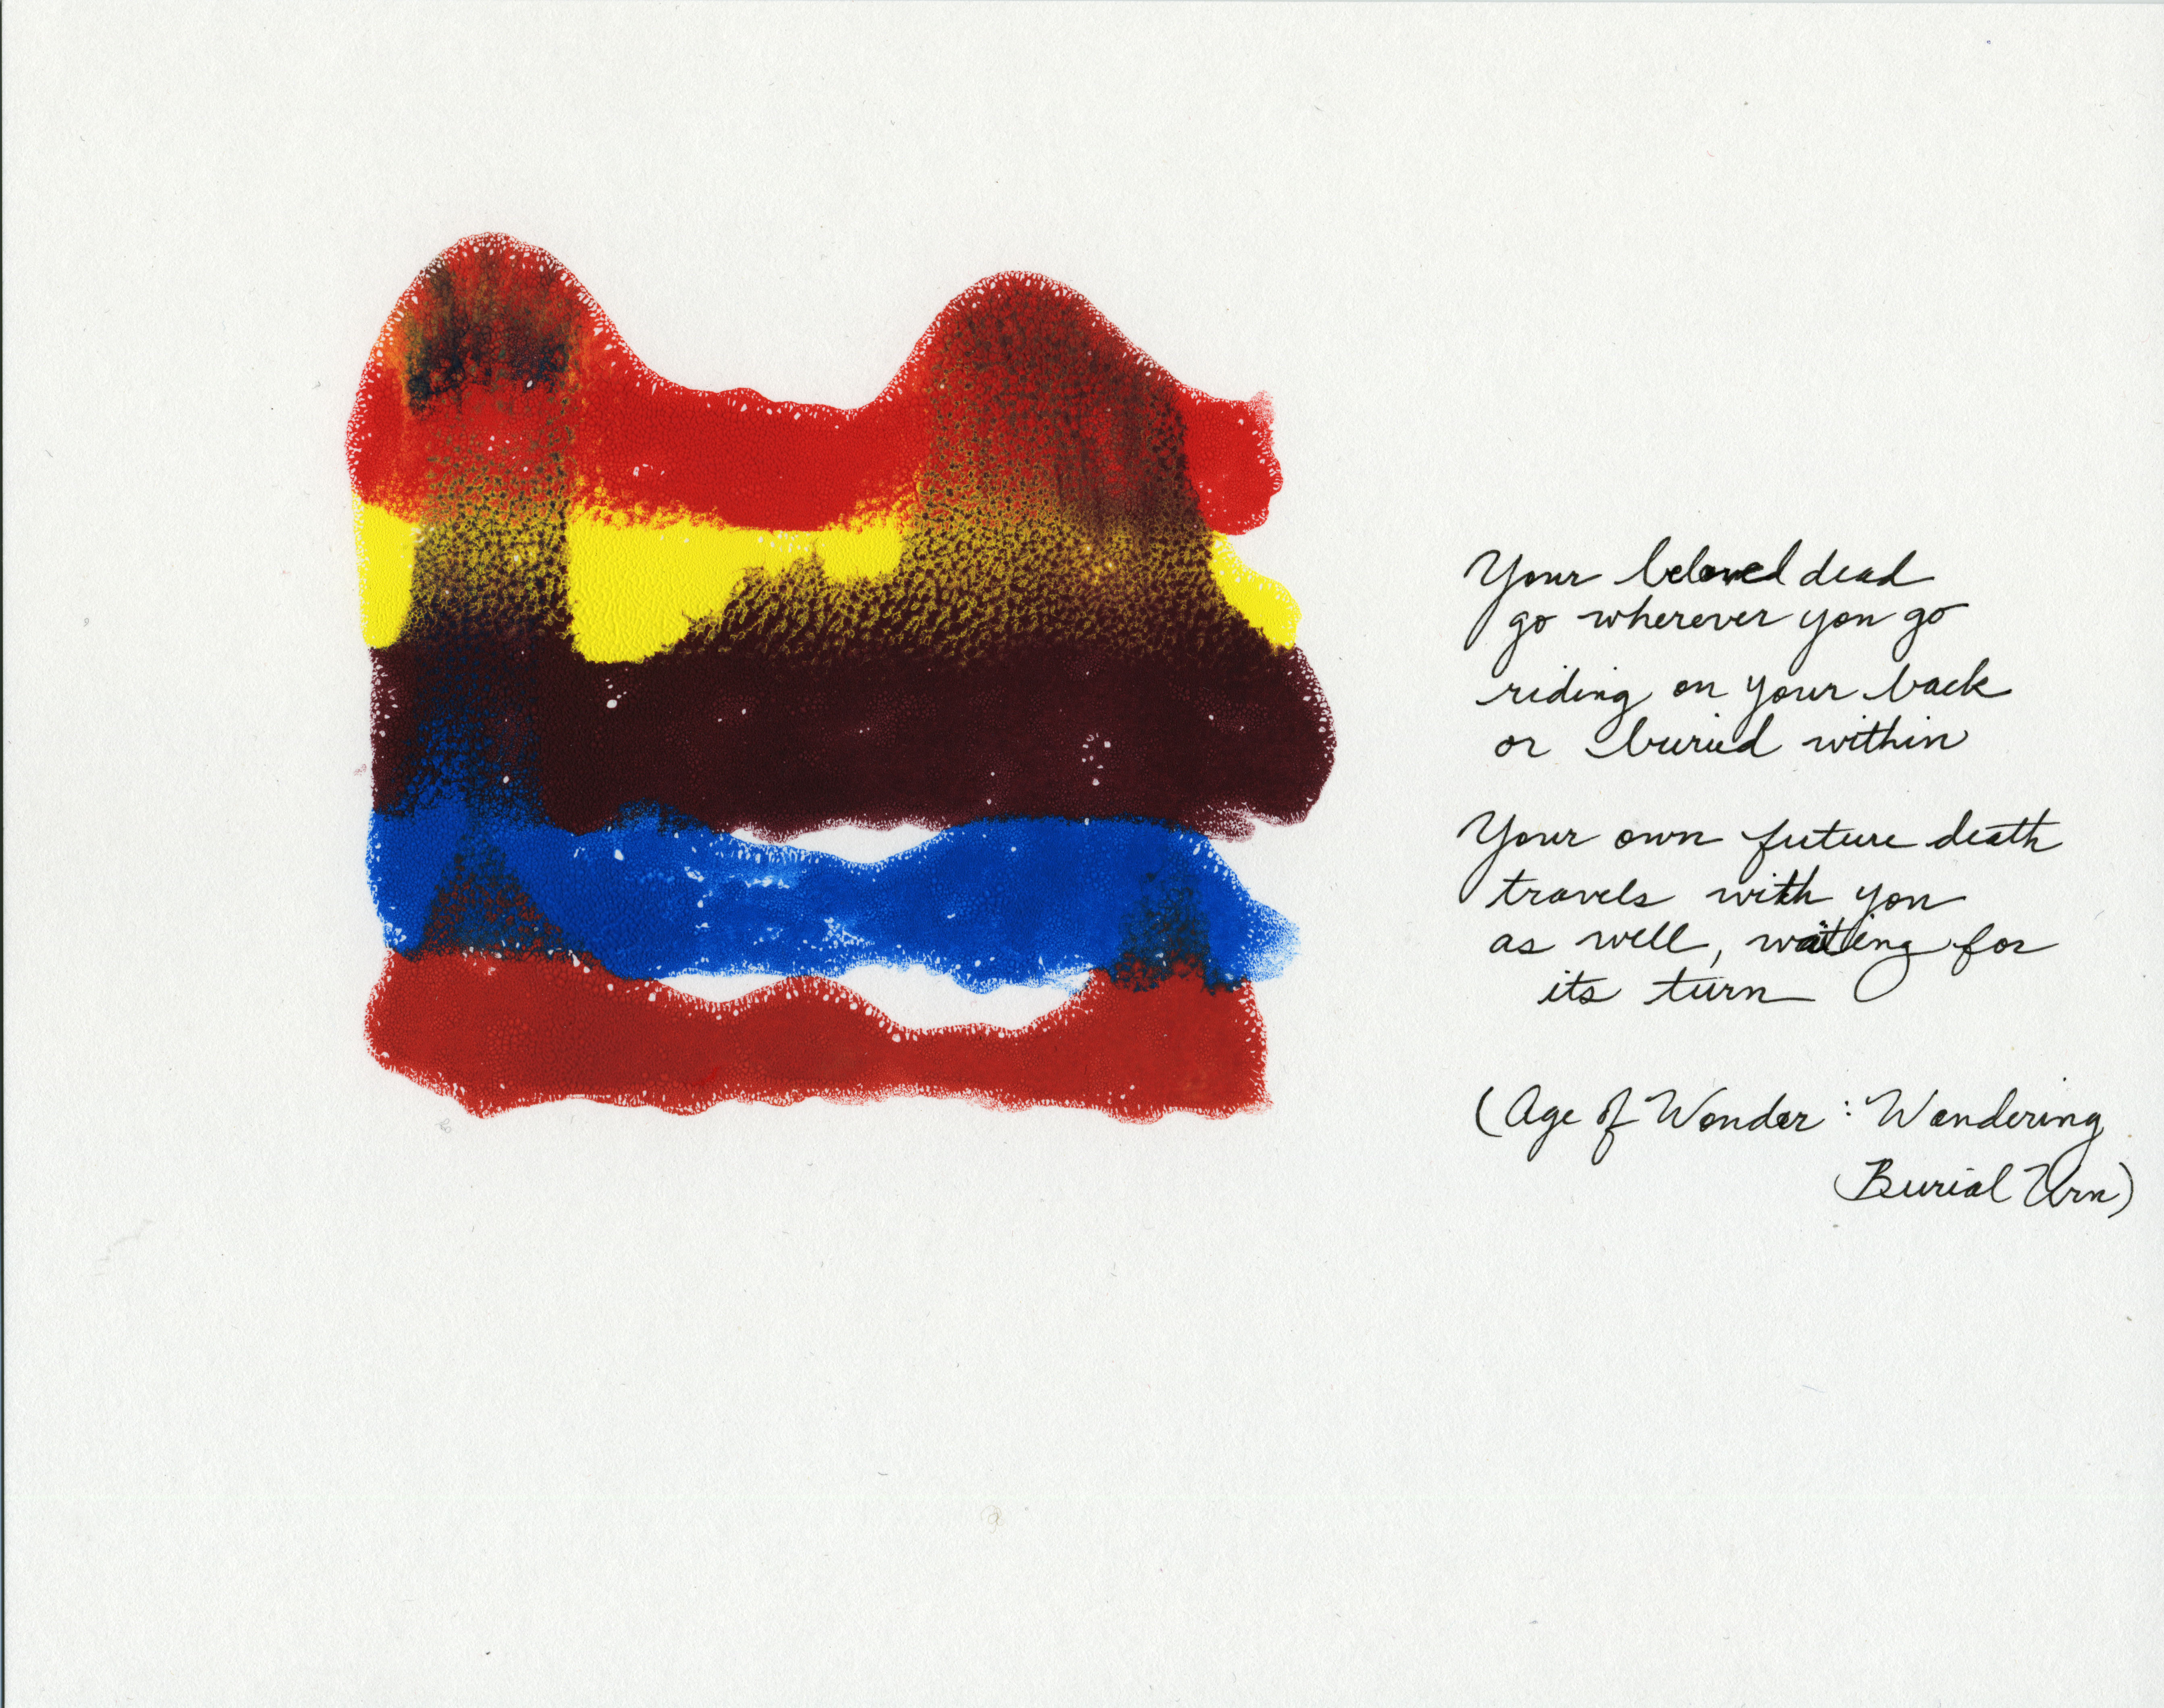 Your beloved dead
go wherever you go
riding on your back
or buried within
Your own future death
travels with you
as well, waiting for
its turn
(Age of Wonder: Wandering
Burial Urn)